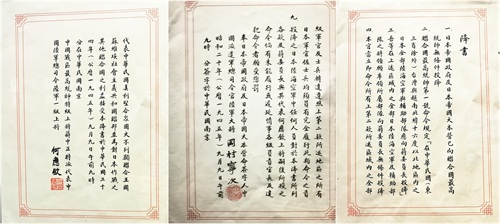 降書
一、日本帝國政府及日本帝國大本營已向聯合國最高
統帥無條件投降
二、聯合國最高統帥第一號命令規定「在中華民國(東
三省除外)台灣與越南北緯十六度以北地區內之
日本全部陸海空軍與輔助部隊應向蔣委員長投降」
三、吾等在上述區域內之全部日本陸海空軍及輔助部
隊之將領願率領所屬部隊向蔣委員長無條件投降
四、本官當立即命令所有上第二款所述區域內之全部
級軍官及士兵
款所述地區之所有
日本軍官佐士兵均須負有完全履行此類命令之責
九、投降之日本陸海空軍中任何人員對於本降書所列
各款及蔣委員長與其代表何應欽上將嗣後所授之
命令倘有未能履行或遲延情事各級負責官長及違
犯命令者願受懲罰
奉日本帝國政府及日本帝國大本營命簽字人中
國派遣軍總司令官陸軍大將
岡村寧次
昭和二十年(公曆一九四五年)九月九日午前
九時 分簽字於中華民國南京
代表中華民國美利堅合眾國大不列顛聯合王國
蘇維埃社會主義共和國聯邦並為對日本作戰之
其他聯合國之利益接受本降書於中華民國三十
四年(公曆一九四五年)九月九日午前九時
分在中華民國南京
中國戰區最高統帥特級上將蔣中正特派代表中
國陸軍總司令陸軍一級上將
何應欽